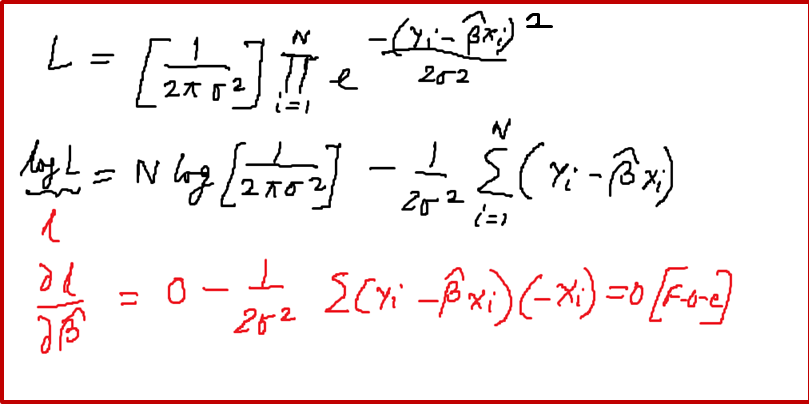 L = [1/2πσ²] ∏_{i=1}^{N} e^{-(yᵢ - β̂xᵢ)²/2σ2}
log L = N log [1/2πσ2] - 1/2σ² Σ_{i=1}^{N} (yᵢ - β̂xᵢ)
l
∂l/∂β̂ = 0 - 1/2σ² Σ(yᵢ - β̂xᵢ)(-xᵢ) = 0 [F-o-c]